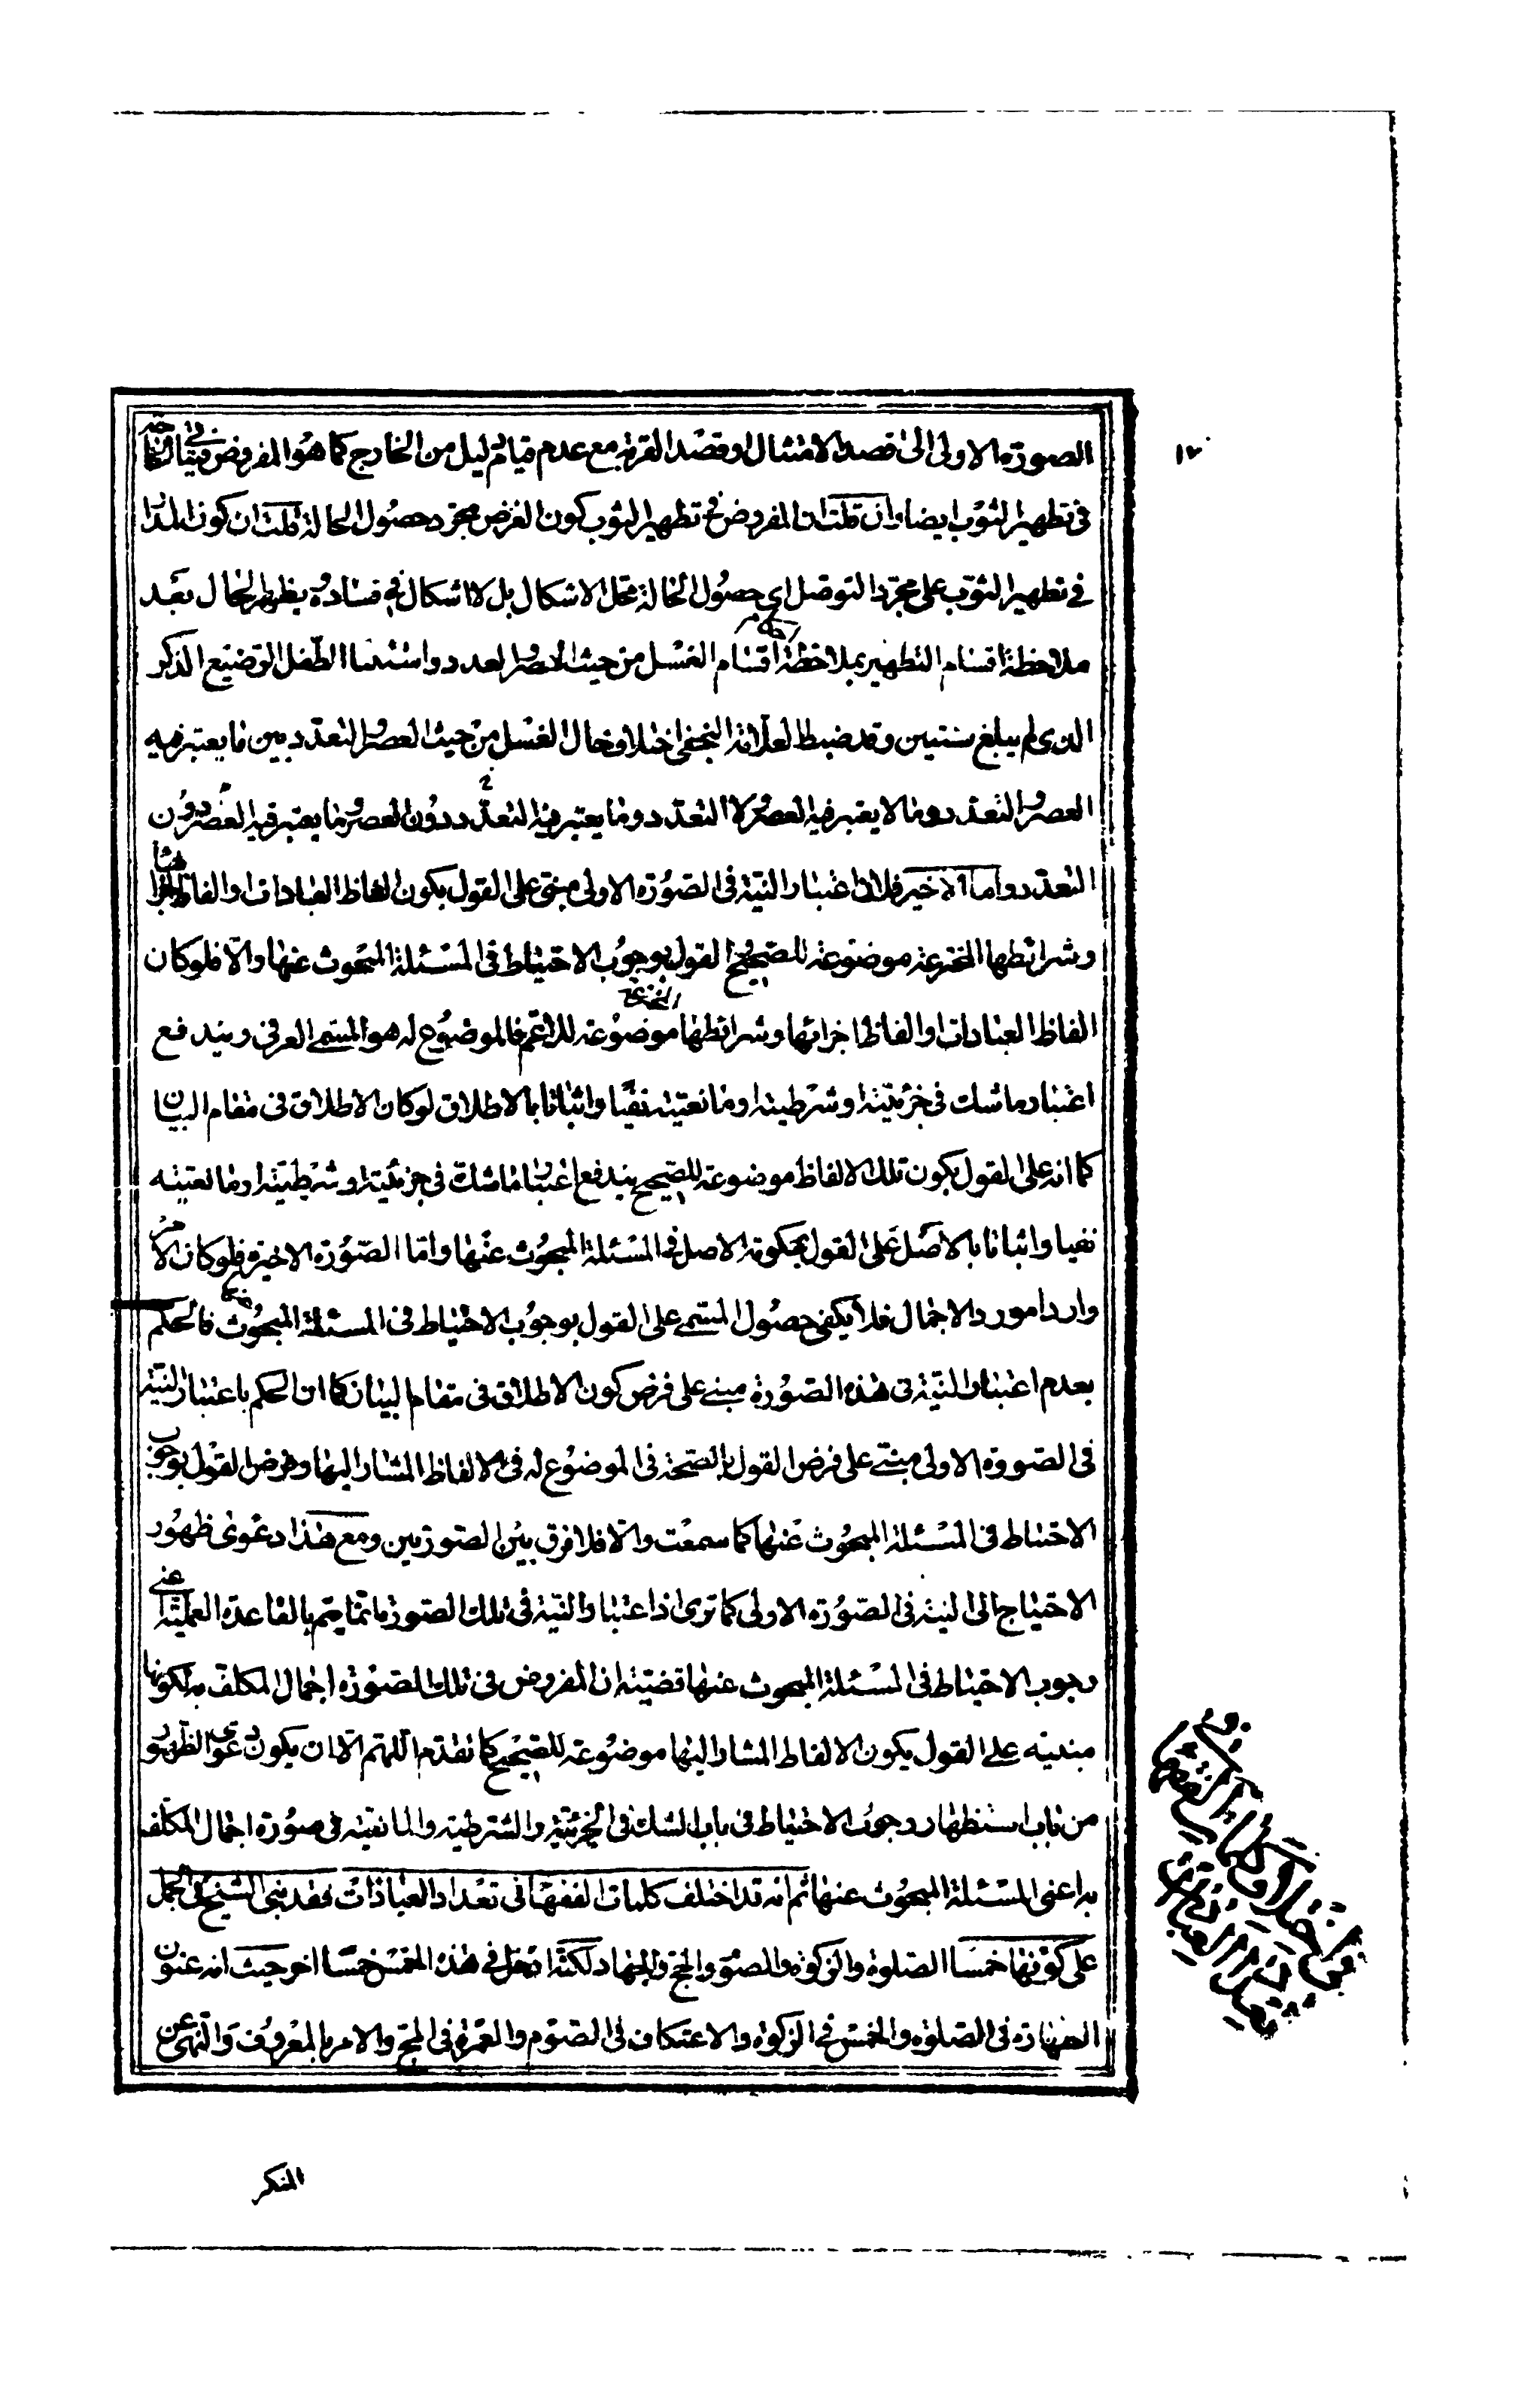 ١٧
الصورة الاولى الى قصد الامتثال او قصد القربة مع عدم قيام دليل من الخارج كما هو المفروض فيتاتى
فى تطهير الثوب ايضا وان قلت ان المفروض فى تطهير الثوب كون الغرض مجرد حصول الحالة قلت ان كون المدار
فى تطهير الثوب على مجرد التوصل اى حصول الحالة محل الاشكال بل لا اشكال فى فساده ويظهر الحال بعد
ملاحظة اقسام التطهير بملاحظة اقسام الغسل من حيث العصر والعدد واستثناء الطفل الرضيع الذكر
الذى لم يبلغ سنتين وقد ضبط العلامة النجفى اختلاف حال الغسل من حيث العصر والتعدد بين ما يعتبر فيه
العصر والتعدد وما لا يعتبر فيه العصر ولا التعدد وما يعتبر فيه التعدد دون العصر وما يعتبر فيه العصر دون
التعدد واما الاخير فلان اعتبار النية فى الصورة الاولى مبنى على القول بكون الفاظ العبادات والفاظ اجزائها
وشرائطها المخترعة موضوعة للصحيح والقول بوجوب الاحتياط فى المسئلة المبحوث عنها والا فلو كان
الفاظ العبادات والفاظ اجزائها وشرائطها المخترعة موضوعة للاعم فالموضوع له هو المسمى العرفى ويندفع
اعتبار ما شك فى جزئيته او شرطيته او مانعيته نفيا واثباتا بالاطلاق لو كان الاطلاق فى مقام البيان
كما انه على القول بكون تلك الالفاظ موضوعة للصحيح يندفع اعتبار ما شك فى جزئيته او شرطيته او مانعيته
نفيا واثباتا بالاصل على القول بحكومة الاصل فى المسئلة المبحوث عنها واما الصورة الاخيرة فلو كان الامر
واردا مورد الاجمال فلا يكفى حصول المسمى على القول بوجوب الاحتياط فى المسئلة المبحوث عنها فالحكم
بعدم اعتبار النية فى هذه الصورة مبنى على فرض كون الاطلاق فى مقام البيان كما ان الحكم باعتبار النية
فى الصورة الاولى مبنى على فرض القول بالصحة فى الموضوع له فى الالفاظ المشار اليها وفرض القول بوجوب
الاحتياط فى المسئلة المبحوث عنها كما سمعت والا فلا فرق بين الصورتين ومع هذا دعوى ظهور
الاحتياج الى النية فى الصورة الاولى كما ترى اذ اعتبار النية فى تلك الصورة انما يتم بالقاعدة العملية اعنى
وجوب الاحتياط فى المسئلة المبحوث عنها قضية ان المفروض فى تلك الصورة اجمال المكلف به لكونها
مبنية على القول بكون الالفاظ المشار اليها موضوعة للصحيح كما تقدم اللهم الا ان يكون دعوى الظهور
من باب استظهار وجوب الاحتياط فى باب الشك فى الجزئية والشرطية والمانعية فى صورة اجمال المكلف
به اعنى المسئلة المبحوث عنها ثم انه قد اختلف كلمات الفقهاء فى تعداد العبادات فقد بنى الشيخ فى الجمل
على كونها خمسا الصلوة والزكوة والصوم والحج والجهاد لكنه ادخل فى هذه الخمس خمسا اخر حيث انه عنون
الطهارة فى الصلوة والخمس فى الزكوة والاعتكاف فى الصوم والعمرة فى الحج والامر بالمعروف والنهى عن
فى اختلاف كلمات الفقهاء فى
تعداد العبادات
المنكر